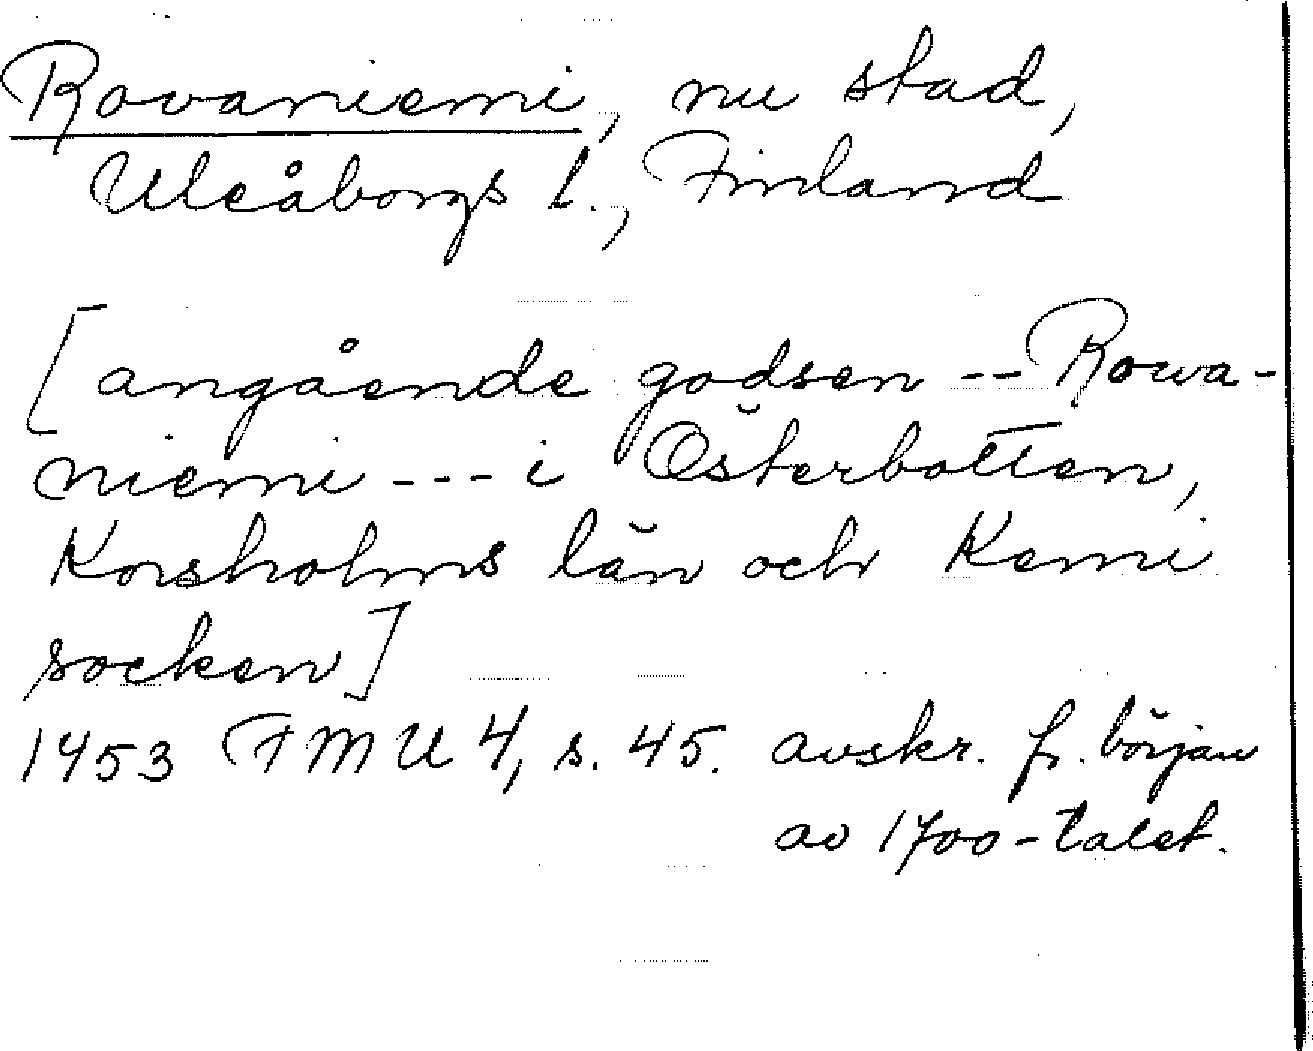 Rovaniemi, nu stad,
Uleåborgs l., Finland
[angående godsen -- Rowa-
niemi --- i Österbotten,
Korsholms län och Kemi
socken]
1453 FMU 4, s. 45. avskr. fr. början
av 1700-talet.